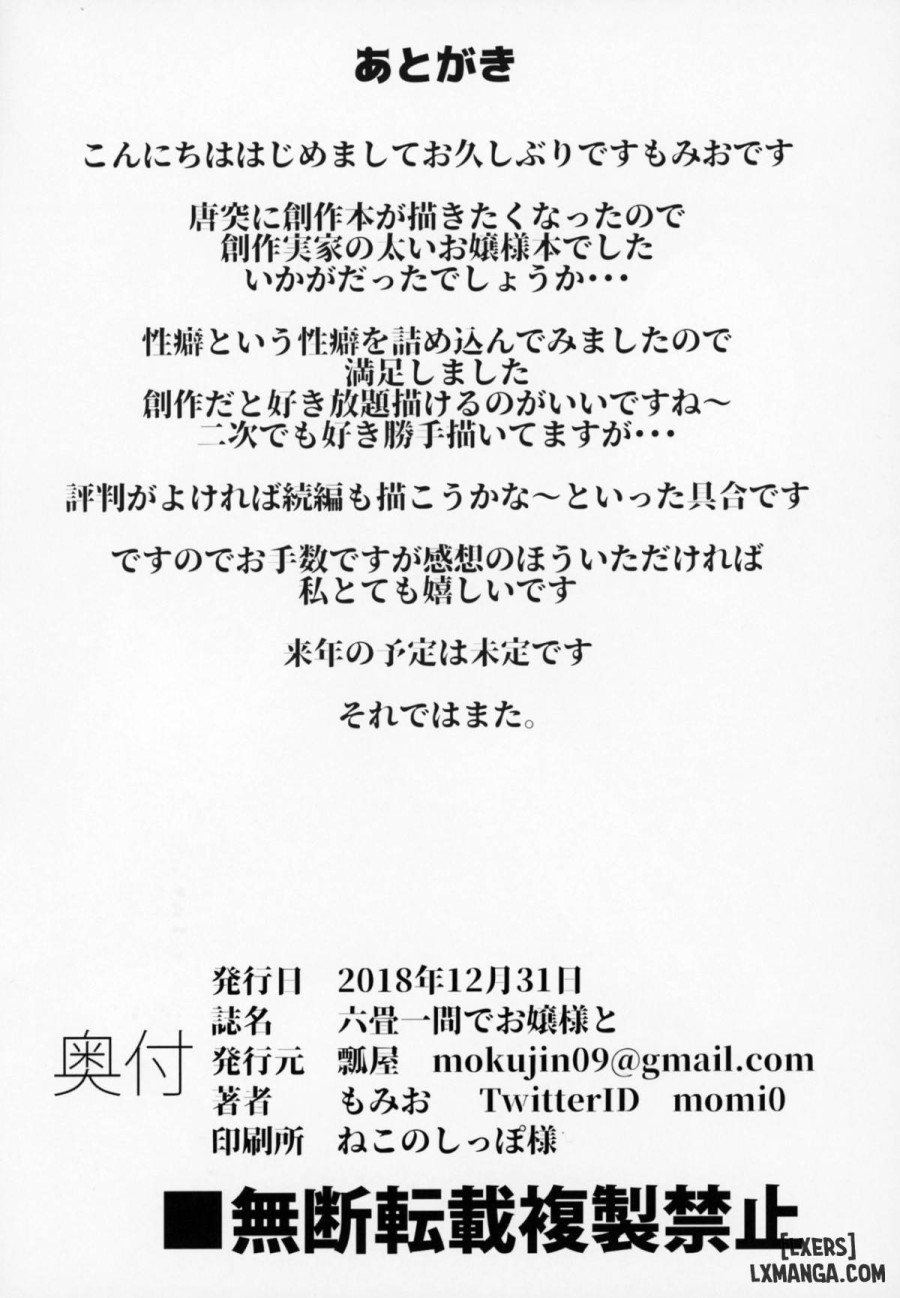 あとがき
こんにちははじめましてお久しぶりですもみおです
唐突に創作本が描きたくなったので
創作実家の太いお嬢様本でした
いかがだったでしょうか・・・
性癖という性癖を詰め込んでみましたので
満足しました
創作だと好き放題描けるのがいいですね～
二次でも好き勝手描いてますが・・・
評判がよければ続編も描こうかな～といった具合です
ですのでお手数ですが感想のほういただければ
私とても嬉しいです
来年の予定は未定です
それではまた。
奥付
発行日 2018年12月31日
誌名 六畳一間でお嬢様と
発行元 瓢屋 mokujin09@gmail.com
著者 もみお TwitterID momi0
印刷所 ねこのしっぽ様
■無断転載複製禁止
[LXERS]
LXMANGA.COM